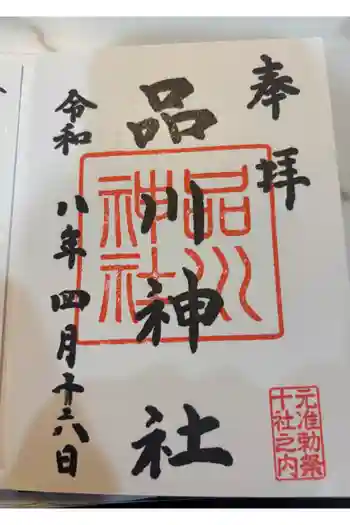 奉拝
品川神社
品川神社
令和八年四月十六日
元准勅祭
十社之内